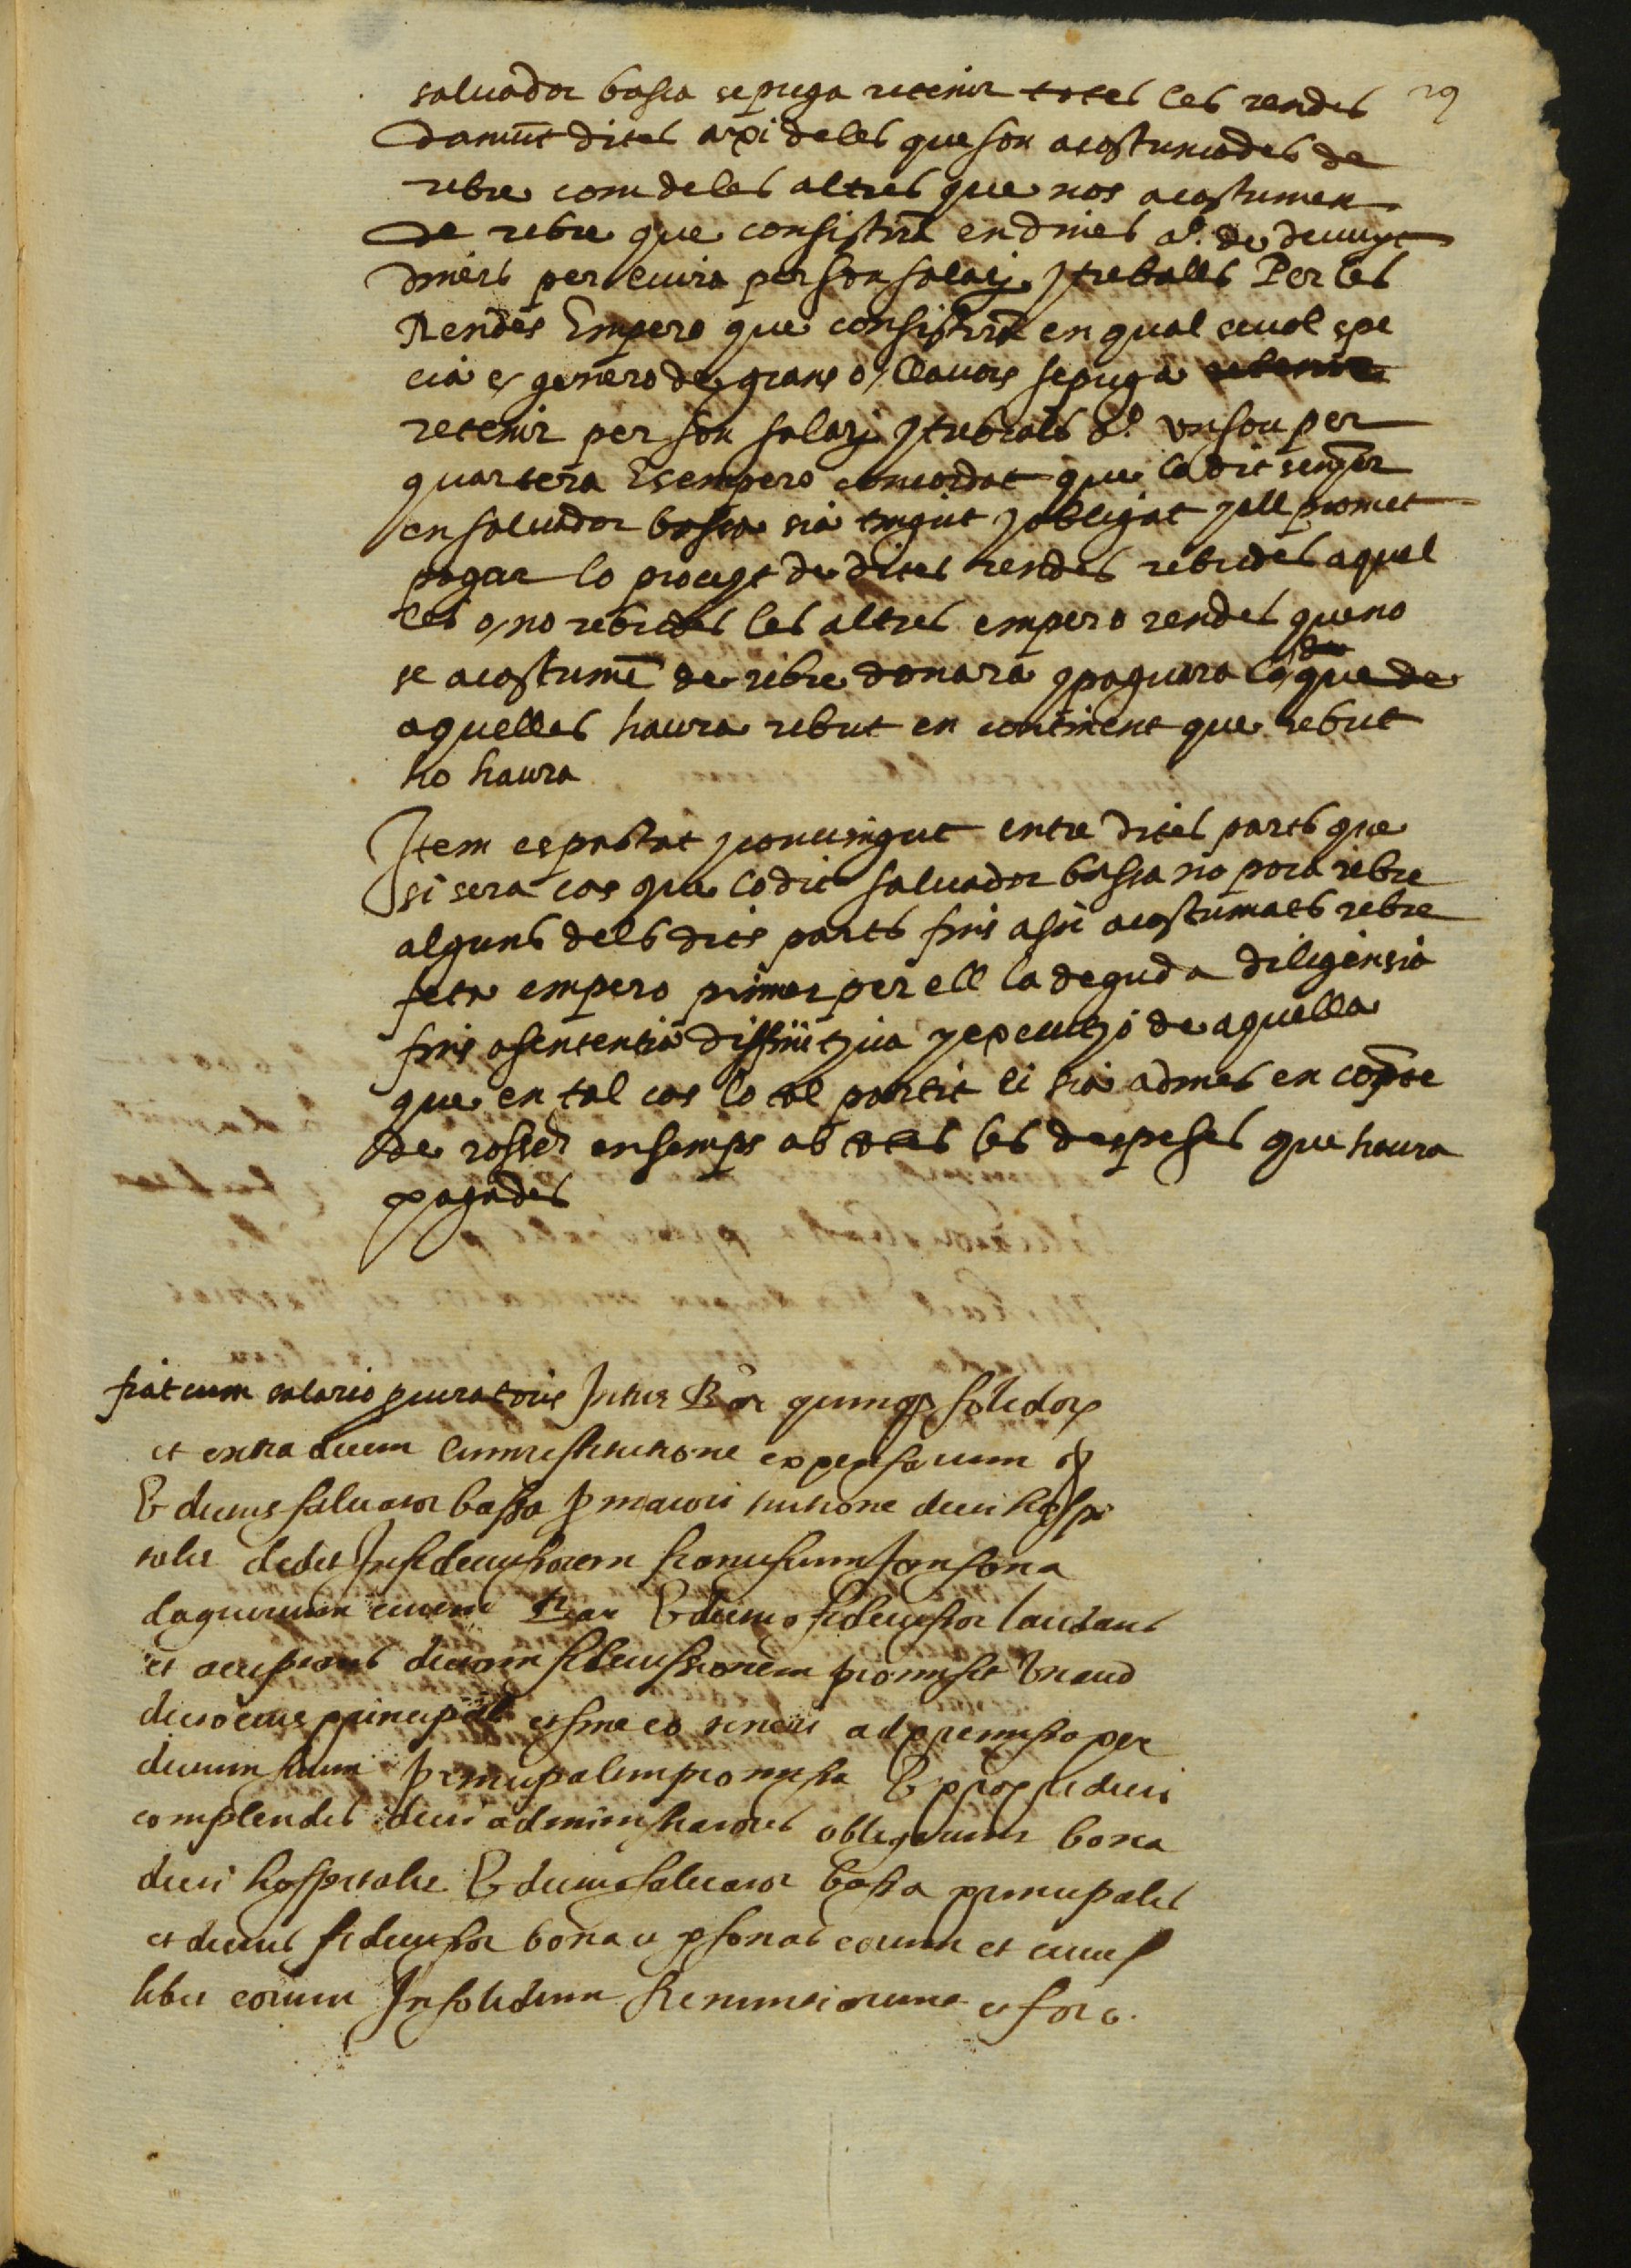 29
salvador bassa se puga retenir totes les rendes
damũt dites axi de les que son acostumades de
rebre com de les altres que nos acostumen
de rebre que consistirã en dines de
dines per liura per son salarj y treballs Per les
Rendes Empero que consistirã en qual seuol spe
cia o genero de grans o, llauors se puga
retenir per son salarj y trebals un sou per
quartera Es empero concordat que lo dit senyor
en saluador bassa sia tingut y obligat y ell promet
pagar lo proceyt de dites rendes rebudes aquel
les o, no rebudes les altres empero rendes que no
se acostumẽ de rebre donara y paguara lo que de
aquelles haura rebut en continent que rebut
ho haura
Item es pactat y conuingut entre dites parts que
si sera cas que lo dit saluador bassa no pora rebre
alguns dels dits parts fins assi acostumats rebre
feta empero primer per ell la deguda diligensia
fins a sententia diffinitiua y executio de aquella
que en tal cas lo tal partit li sia admes en compte
de rosses ensemps ab totes les despeses que haura
pagades
fiat cum salario procuratoris Intus Bar quinqz solidorum
et extra decem cum restitutione expensarum
Et dictus saluator bassa pro maiori tuitione dicti hospi
talis dedit In fideiussorem
ciuem Bar Et dictus fideiussor laudans
et acceptans dictam fideiussionem promisit Una cum
dicto eius principali et sine eo teneri ad premissa per
dictum suum principalem promissa Et pro his
complendis dicti administratores obligarunt bona
dicti hospitalis Et dictus saluator bassa principalis
et dictus fideiussor bona et personas eorum et cuius
libet eorum In solidum Renunciarunt et foro.